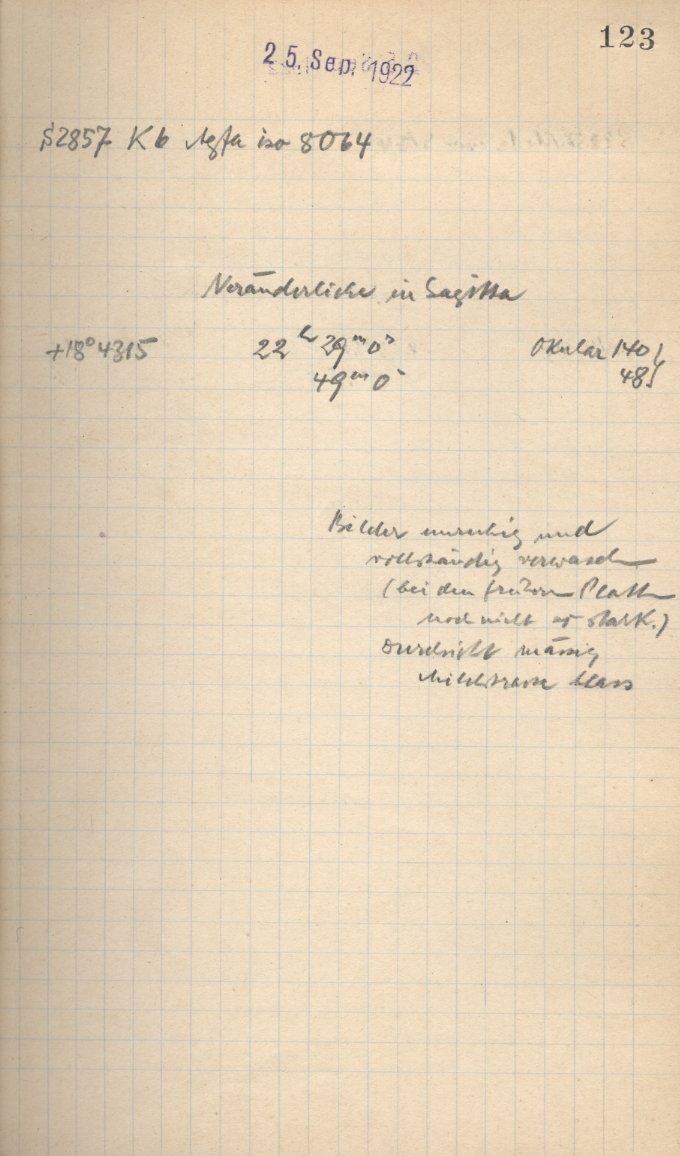 123
25. Sep. 1922
S2857 Kb Agfa iso 8064
Veränderliche in Sagitta
+18° 4315 22ʰ 29ᵐ 0ˢ Okular 140
49ᵐ 0ˢ 48
Bilder unruhig und
vollständig verwaschen
(bei den frühern Platten
noch nicht so stark.)
Durchsicht mässig
Milchstrasse blass